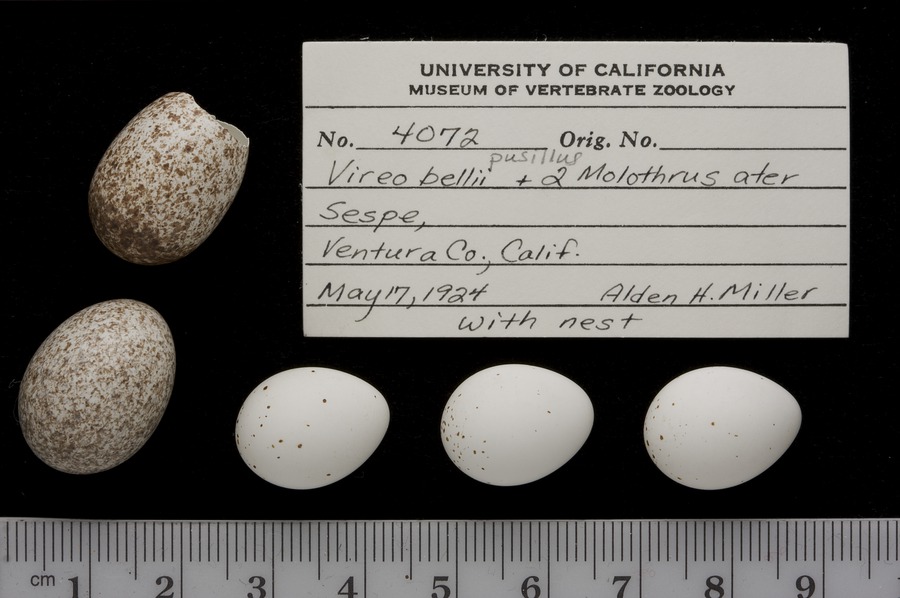 UNIVERSITY OF CALIFORNIA
MUSEUM OF VERTEBRATE ZOOLOGY
No. 4072 Orig. No.
pusillus
Vireo bellii + 2 Molothrus ater
Sespe,
Ventura Co., Calif.
May 17, 1924 Alden H. Miller
with nest
cm 1 2 3 4 5 6 7 8 9